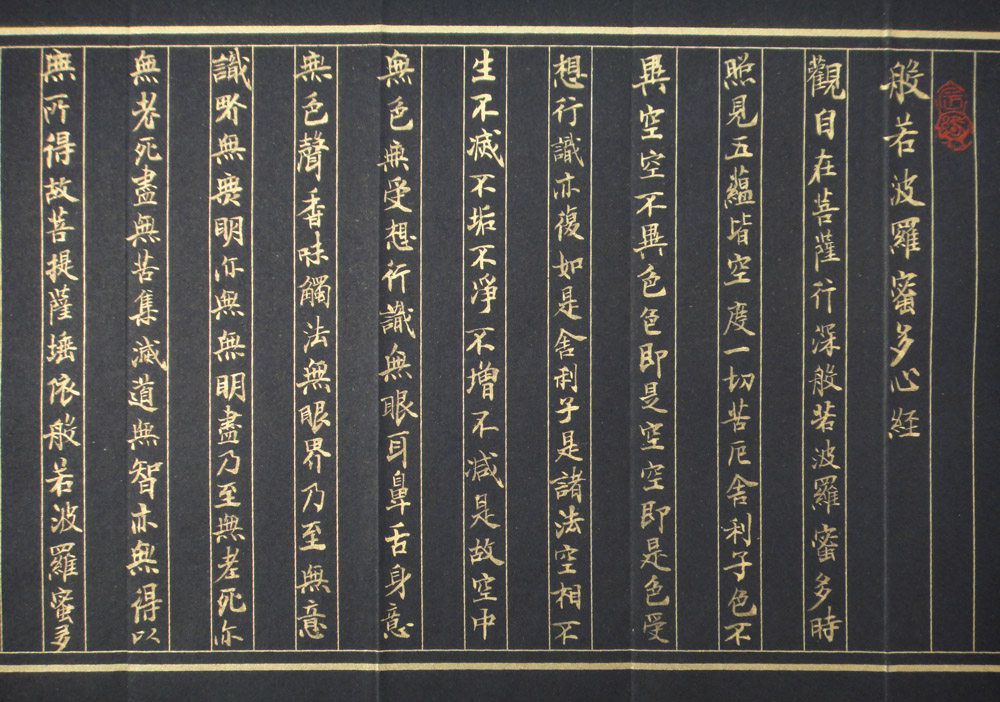 般若波羅蜜多心経
觀自在菩薩行深般若波羅蜜多時
照見五蘊皆空度一切苦厄舍利子色不
異空空不異色色即是空空即是色受
想行識亦復如是舍利子是諸法空相不
生不滅不垢不淨不增不減是故空中
無色無受想行識無眼耳鼻舌身意
無色聲香味觸法無眼界乃至無意
識界無無明亦無無明盡乃至無老死亦
無老死盡無苦集滅道無智亦無得以
無所得故菩提薩埵依般若波羅蜜多